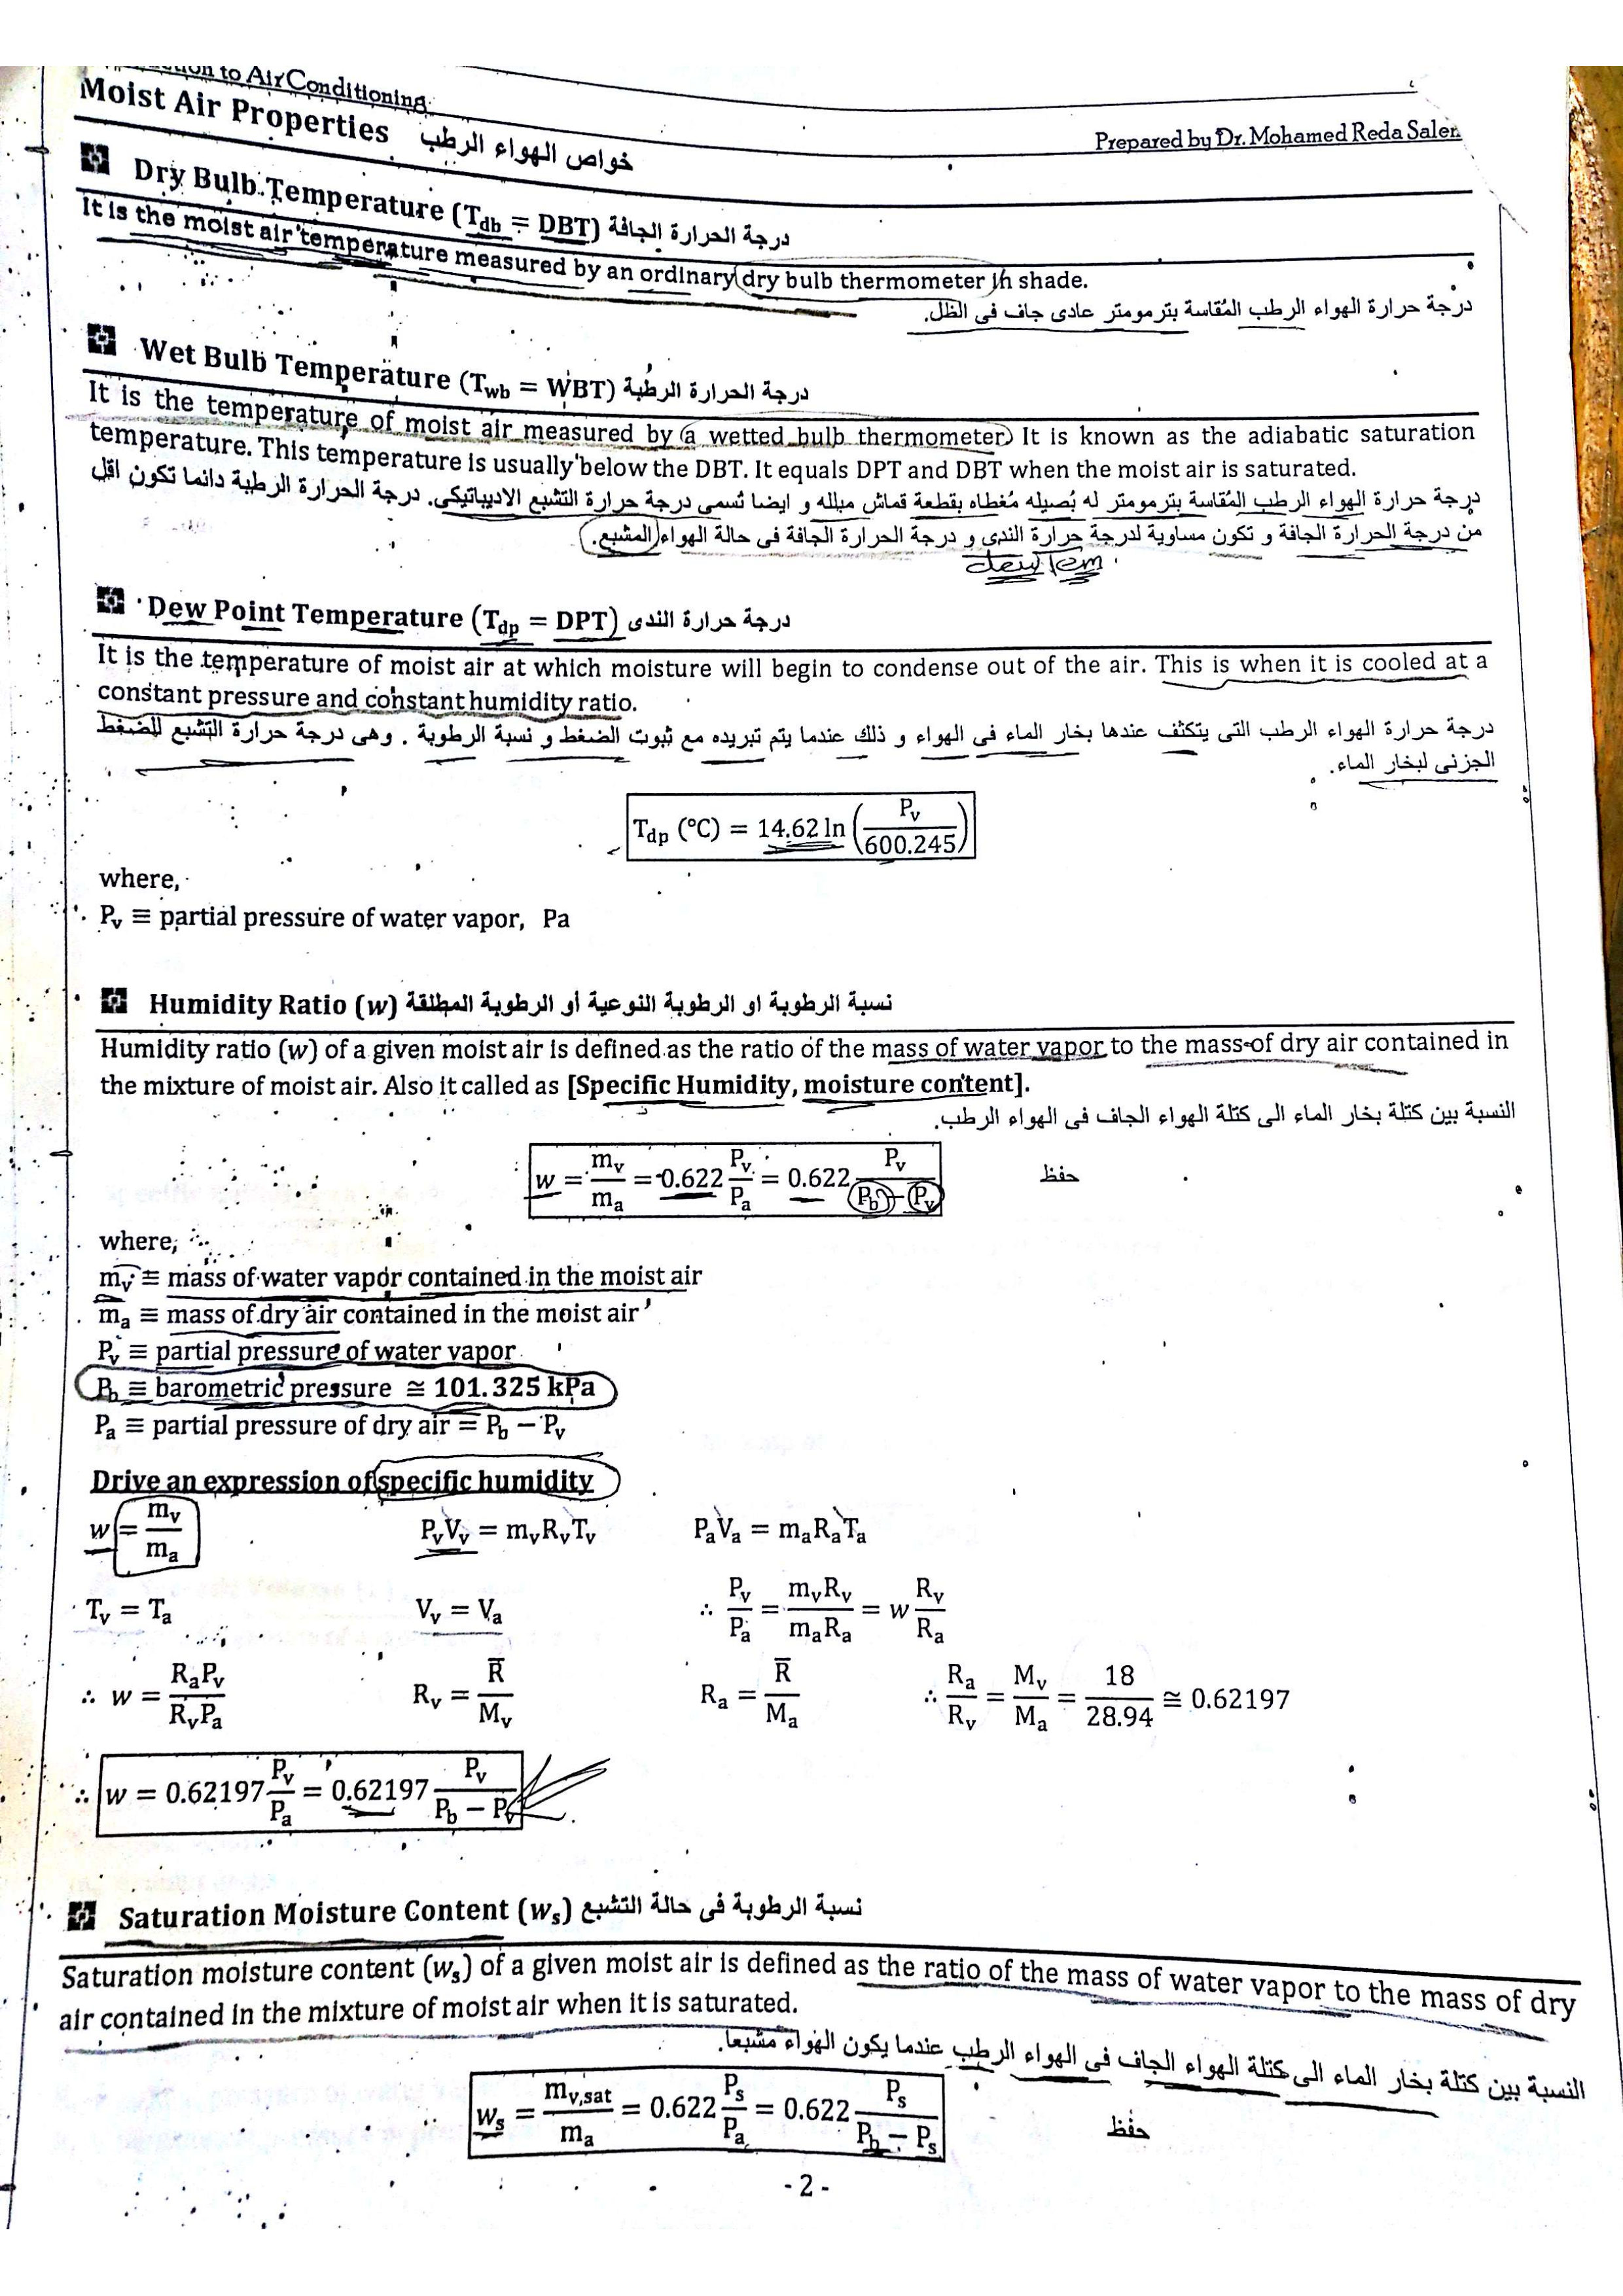 to Air Conditioning
Prepared by Dr. Mohamed Reda Salem
Moist Air Properties خواص الهواء الرطب
Dry Bulb Temperature (Tdb = DBT) درجة الحرارة الجافة
It is the moist air temperature measured by an ordinary dry bulb thermometer in shade.
درجة حرارة الهواء الرطب المُقاسة بترمومتر عادى جاف فى الظل.
Wet Bulb Temperature (Twb = WBT) درجة الحرارة الرطبة
It is the temperature of moist air measured by a wetted bulb thermometer. It is known as the adiabatic saturation
temperature. This temperature is usually below the DBT. It equals DPT and DBT when the moist air is saturated.
درجة حرارة الهواء الرطب المُقاسة بترمومتر له بُصيله مُغطاه بقطعة قماش مبلله و ايضا تُسمى درجة حرارة التشبع الاديباتيكى. درجة الحرارة الرطبة دائما تكون اقل
من درجة الحرارة الجافة و تكون مساوية لدرجة حرارة الندى و درجة الحرارة الجافة فى حالة الهواء المشبع.
dew Tem
Dew Point Temperature (Tdp = DPT) درجة حرارة الندى
It is the temperature of moist air at which moisture will begin to condense out of the air. This is when it is cooled at a
constant pressure and constant humidity ratio.
درجة حرارة الهواء الرطب التى يتكثف عندها بخار الماء فى الهواء و ذلك عندما يتم تبريده مع ثبوت الضغط و نسبة الرطوبة . وهى درجة حرارة التشبع للضغط
الجزئى لبخار الماء.
Tdp (°C) = 14.62 ln (Pv / 600.245)
where,
Pv ≡ partial pressure of water vapor, Pa
Humidity Ratio (w) نسبة الرطوبة او الرطوبة النوعية أو الرطوبة المطلقة
Humidity ratio (w) of a given moist air is defined as the ratio of the mass of water vapor to the mass of dry air contained in
the mixture of moist air. Also it called as [Specific Humidity, moisture content].
النسبة بين كتلة بخار الماء الى كتلة الهواء الجاف فى الهواء الرطب.
w = mv / ma = 0.622 Pv / Pa = 0.622 Pv / (Pb − Pv) حفظ
where;
mv ≡ mass of water vapor contained in the moist air
ma ≡ mass of dry air contained in the moist air
Pv ≡ partial pressure of water vapor
Pb ≡ barometric pressure ≅ 101.325 kPa
Pa ≡ partial pressure of dry air = Pb − Pv
Drive an expression of specific humidity
w = mv / ma PvVv = mvRvTv PaVa = maRaTa
Tv = Ta Vv = Va ∴ Pv / Pa = mvRv / maRa = w Rv / Ra
∴ w = RaPv / RvPa Rv = R̅ / Mv Ra = R̅ / Ma ∴ Ra / Rv = Mv / Ma = 18 / 28.94 ≅ 0.62197
∴ w = 0.62197 Pv / Pa = 0.62197 Pv / (Pb − Pv)
Saturation Moisture Content (ws) نسبة الرطوبة فى حالة التشبع
Saturation moisture content (ws) of a given moist air is defined as the ratio of the mass of water vapor to the mass of dry
air contained in the mixture of moist air when it is saturated.
النسبة بين كتلة بخار الماء الى كتلة الهواء الجاف فى الهواء الرطب عندما يكون الهواء مشبعا.
ws = mv,sat / ma = 0.622 Ps / Pa = 0.622 Ps / (Pb − Ps) حفظ
- 2 -